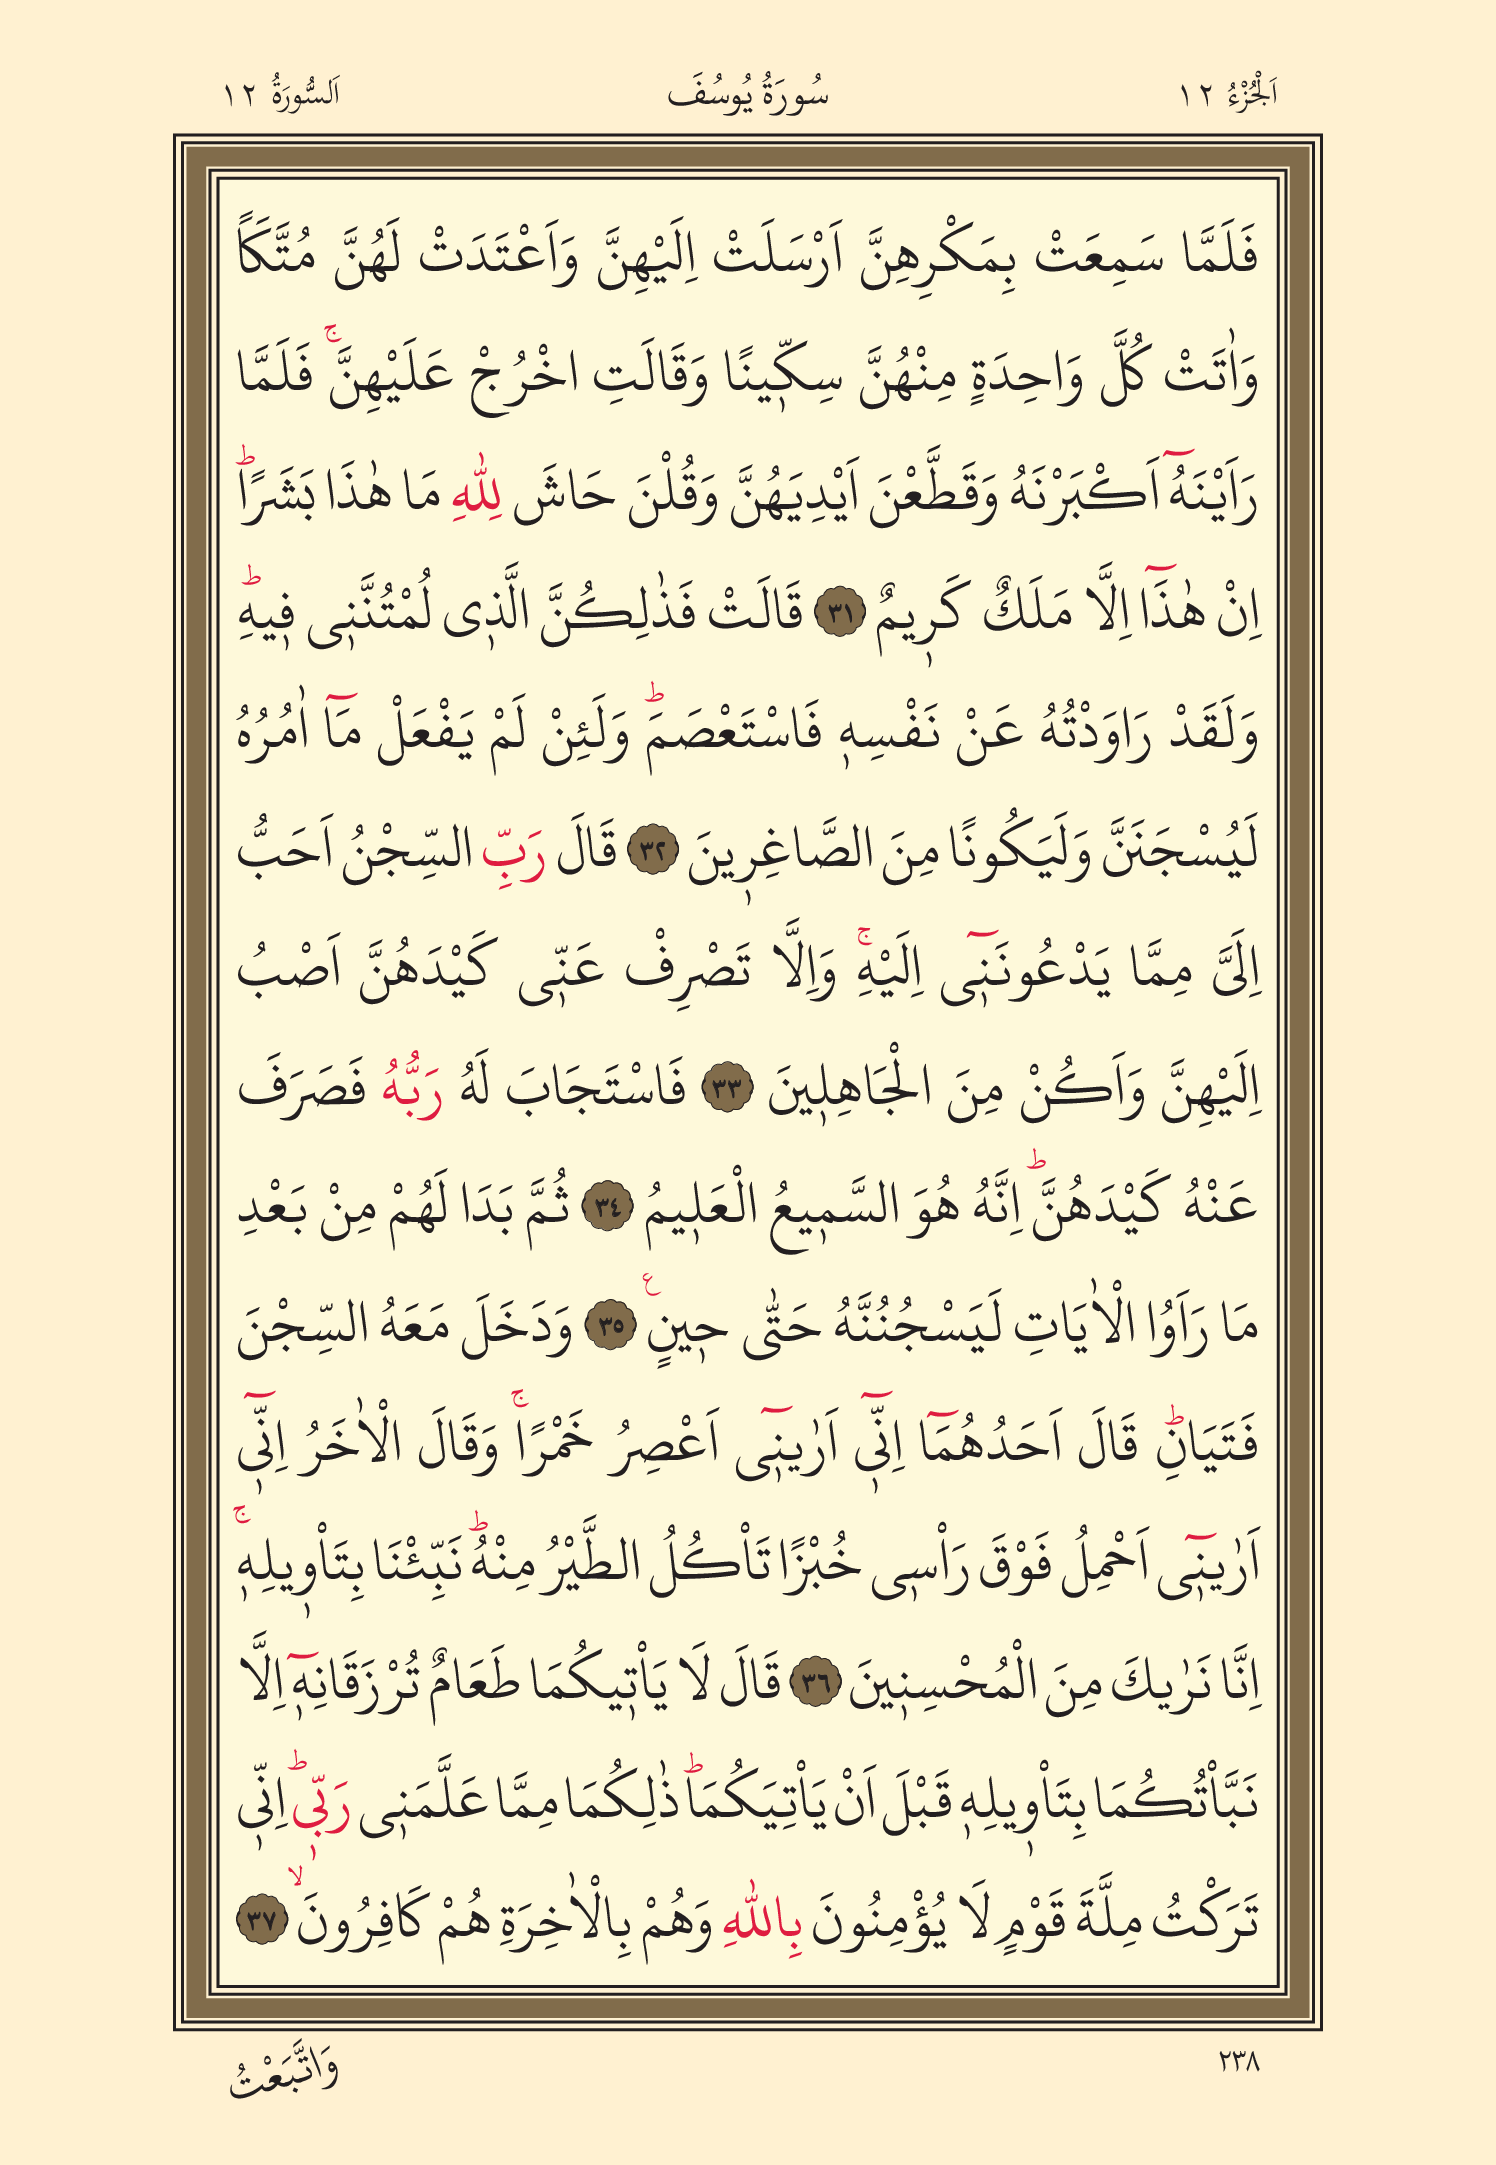 اَلْجُزْءُ ١٢
سُورَةُ يُوسُفَ
اَلسُّورَةُ ١٢
فَلَمَّا سَمِعَتْ بِمَكْرِهِنَّ اَرْسَلَتْ اِلَيْهِنَّ وَاَعْتَدَتْ لَهُنَّ مُتَّكَاً
وَاٰتَتْ كُلَّ وَاحِدَةٍ مِنْهُنَّ سِكّ۪ينًا وَقَالَتِ اخْرُجْ عَلَيْهِنَّۚ فَلَمَّا
رَاَيْنَهُٓ اَكْبَرْنَهُ وَقَطَّعْنَ اَيْدِيَهُنَّ وَقُلْنَ حَاشَ لِلّٰهِ مَا هٰذَا بَشَرًاۜ
اِنْ هٰذَٓا اِلَّا مَلَكٌ كَر۪يمٌ ﴿٣١﴾ قَالَتْ فَذٰلِكُنَّ الَّذ۪ى لُمْتُنَّن۪ى ف۪يهِۜ
وَلَقَدْ رَاوَدْتُهُ عَنْ نَفْسِه۪ فَاسْتَعْصَمَۜ وَلَئِنْ لَمْ يَفْعَلْ مَٓا اٰمُرُهُ
لَيُسْجَنَنَّ وَلَيَكُونًا مِنَ الصَّاغِر۪ينَ ﴿٣٢﴾ قَالَ رَبِّ السِّجْنُ اَحَبُّ
اِلَىَّ مِمَّا يَدْعُونَن۪ٓى اِلَيْهِۚ وَاِلَّا تَصْرِفْ عَنّ۪ى كَيْدَهُنَّ اَصْبُ
اِلَيْهِنَّ وَاَكُنْ مِنَ الْجَاهِل۪ينَ ﴿٣٣﴾ فَاسْتَجَابَ لَهُ رَبُّهُ فَصَرَفَ
عَنْهُ كَيْدَهُنَّۜ اِنَّهُ هُوَ السَّم۪يعُ الْعَل۪يمُ ﴿٣٤﴾ ثُمَّ بَدَا لَهُمْ مِنْ بَعْدِ
مَا رَاَوُا الْاٰيَاتِ لَيَسْجُنُنَّهُ حَتّٰى ح۪ينٍ ع ﴿٣٥﴾ وَدَخَلَ مَعَهُ السِّجْنَ
فَتَيَانِۜ قَالَ اَحَدُهُمَٓا اِنّ۪ٓى اَرٰين۪ٓى اَعْصِرُ خَمْرًاۚ وَقَالَ الْاٰخَرُ اِنّ۪ٓى
اَرٰين۪ٓى اَحْمِلُ فَوْقَ رَاْس۪ى خُبْزًا تَاْكُلُ الطَّيْرُ مِنْهُۜ نَبِّئْنَا بِتَاْو۪يلِه۪ۚ
اِنَّا نَرٰيكَ مِنَ الْمُحْسِن۪ينَ ﴿٣٦﴾ قَالَ لَا يَاْت۪يكُمَا طَعَامٌ تُرْزَقَانِه۪ٓ اِلَّا
نَبَّاْتُكُمَا بِتَاْو۪يلِه۪ قَبْلَ اَنْ يَاْتِيَكُمَاۜ ذٰلِكُمَا مِمَّا عَلَّمَن۪ى رَبّ۪ىۜ اِنّ۪ى
تَرَكْتُ مِلَّةَ قَوْمٍ لَا يُؤْمِنُونَ بِاللّٰهِ وَهُمْ بِالْاٰخِرَةِ هُمْ كَافِرُونَۙ ﴿٣٧﴾
٢٣٨
وَاتَّبَعْتُ